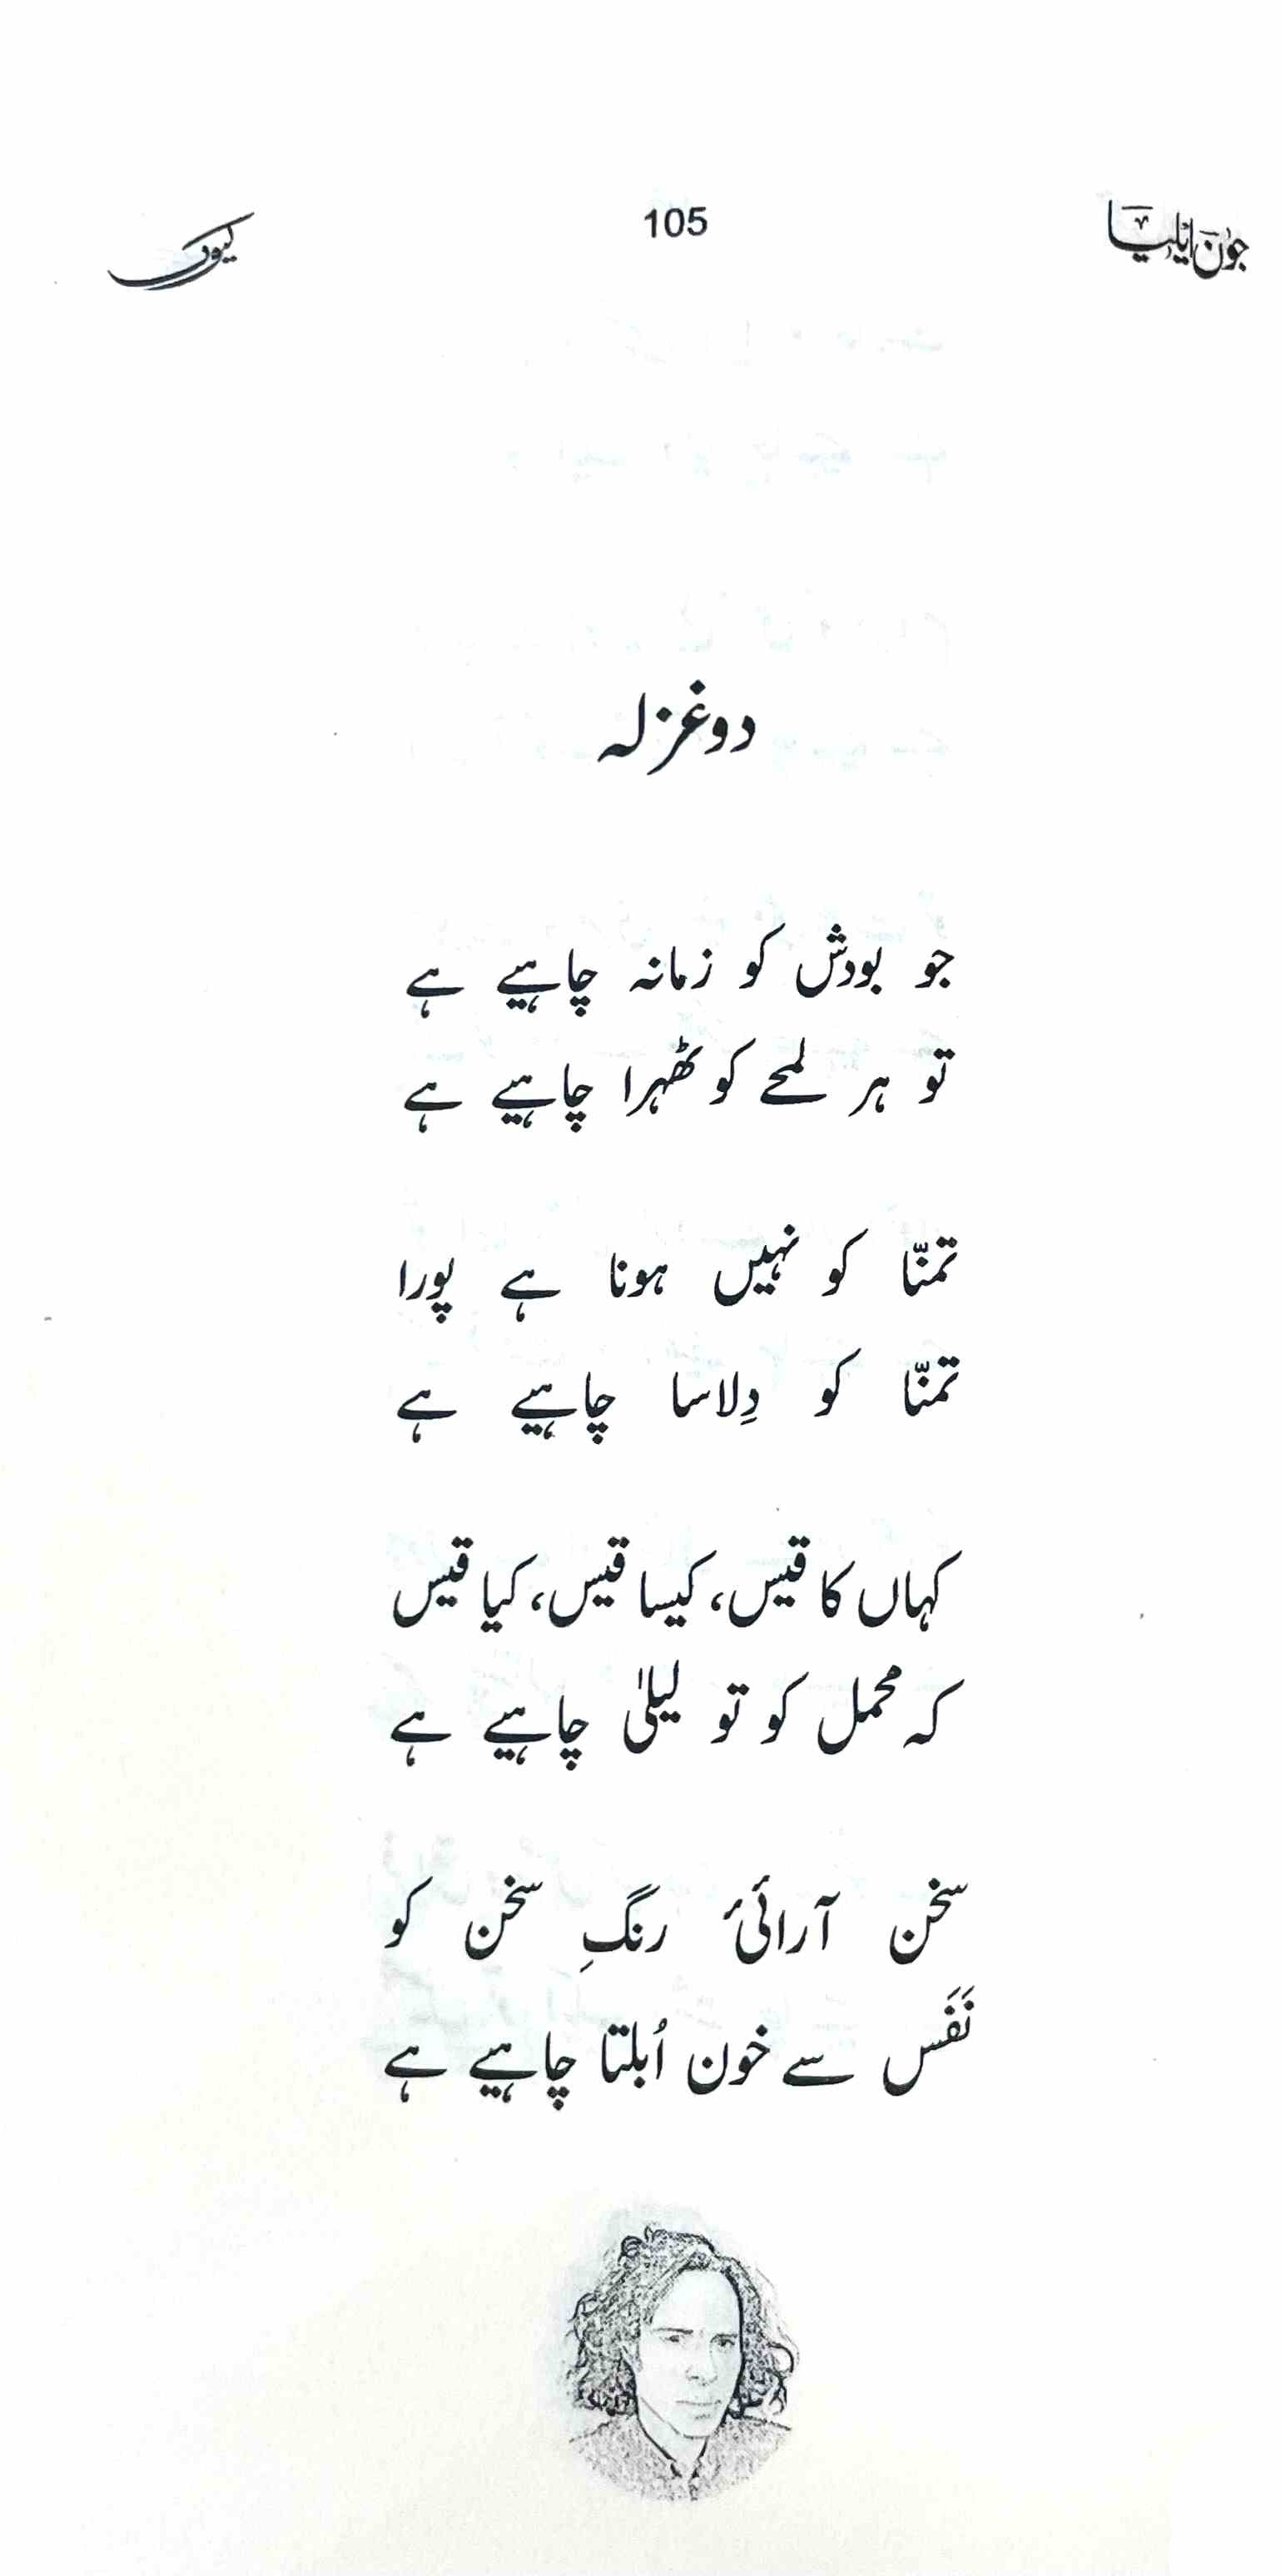 جون ایلیا
105
کیوں
دوغزلہ
جو بودش کو زمانہ چاہیے ہے
تو ہر لمحے کو ٹھہرا چاہیے ہے
تمنّا کو نہیں ہونا ہے پورا
تمنّا کو دِلاسا چاہیے ہے
کہاں کا قیس، کیسا قیس، کیا قیس
کہ محمل کو تو لیلیٰ چاہیے ہے
سخن آرائیٔ رنگِ سخن کو
نَفَس سے خون اُبلتا چاہیے ہے